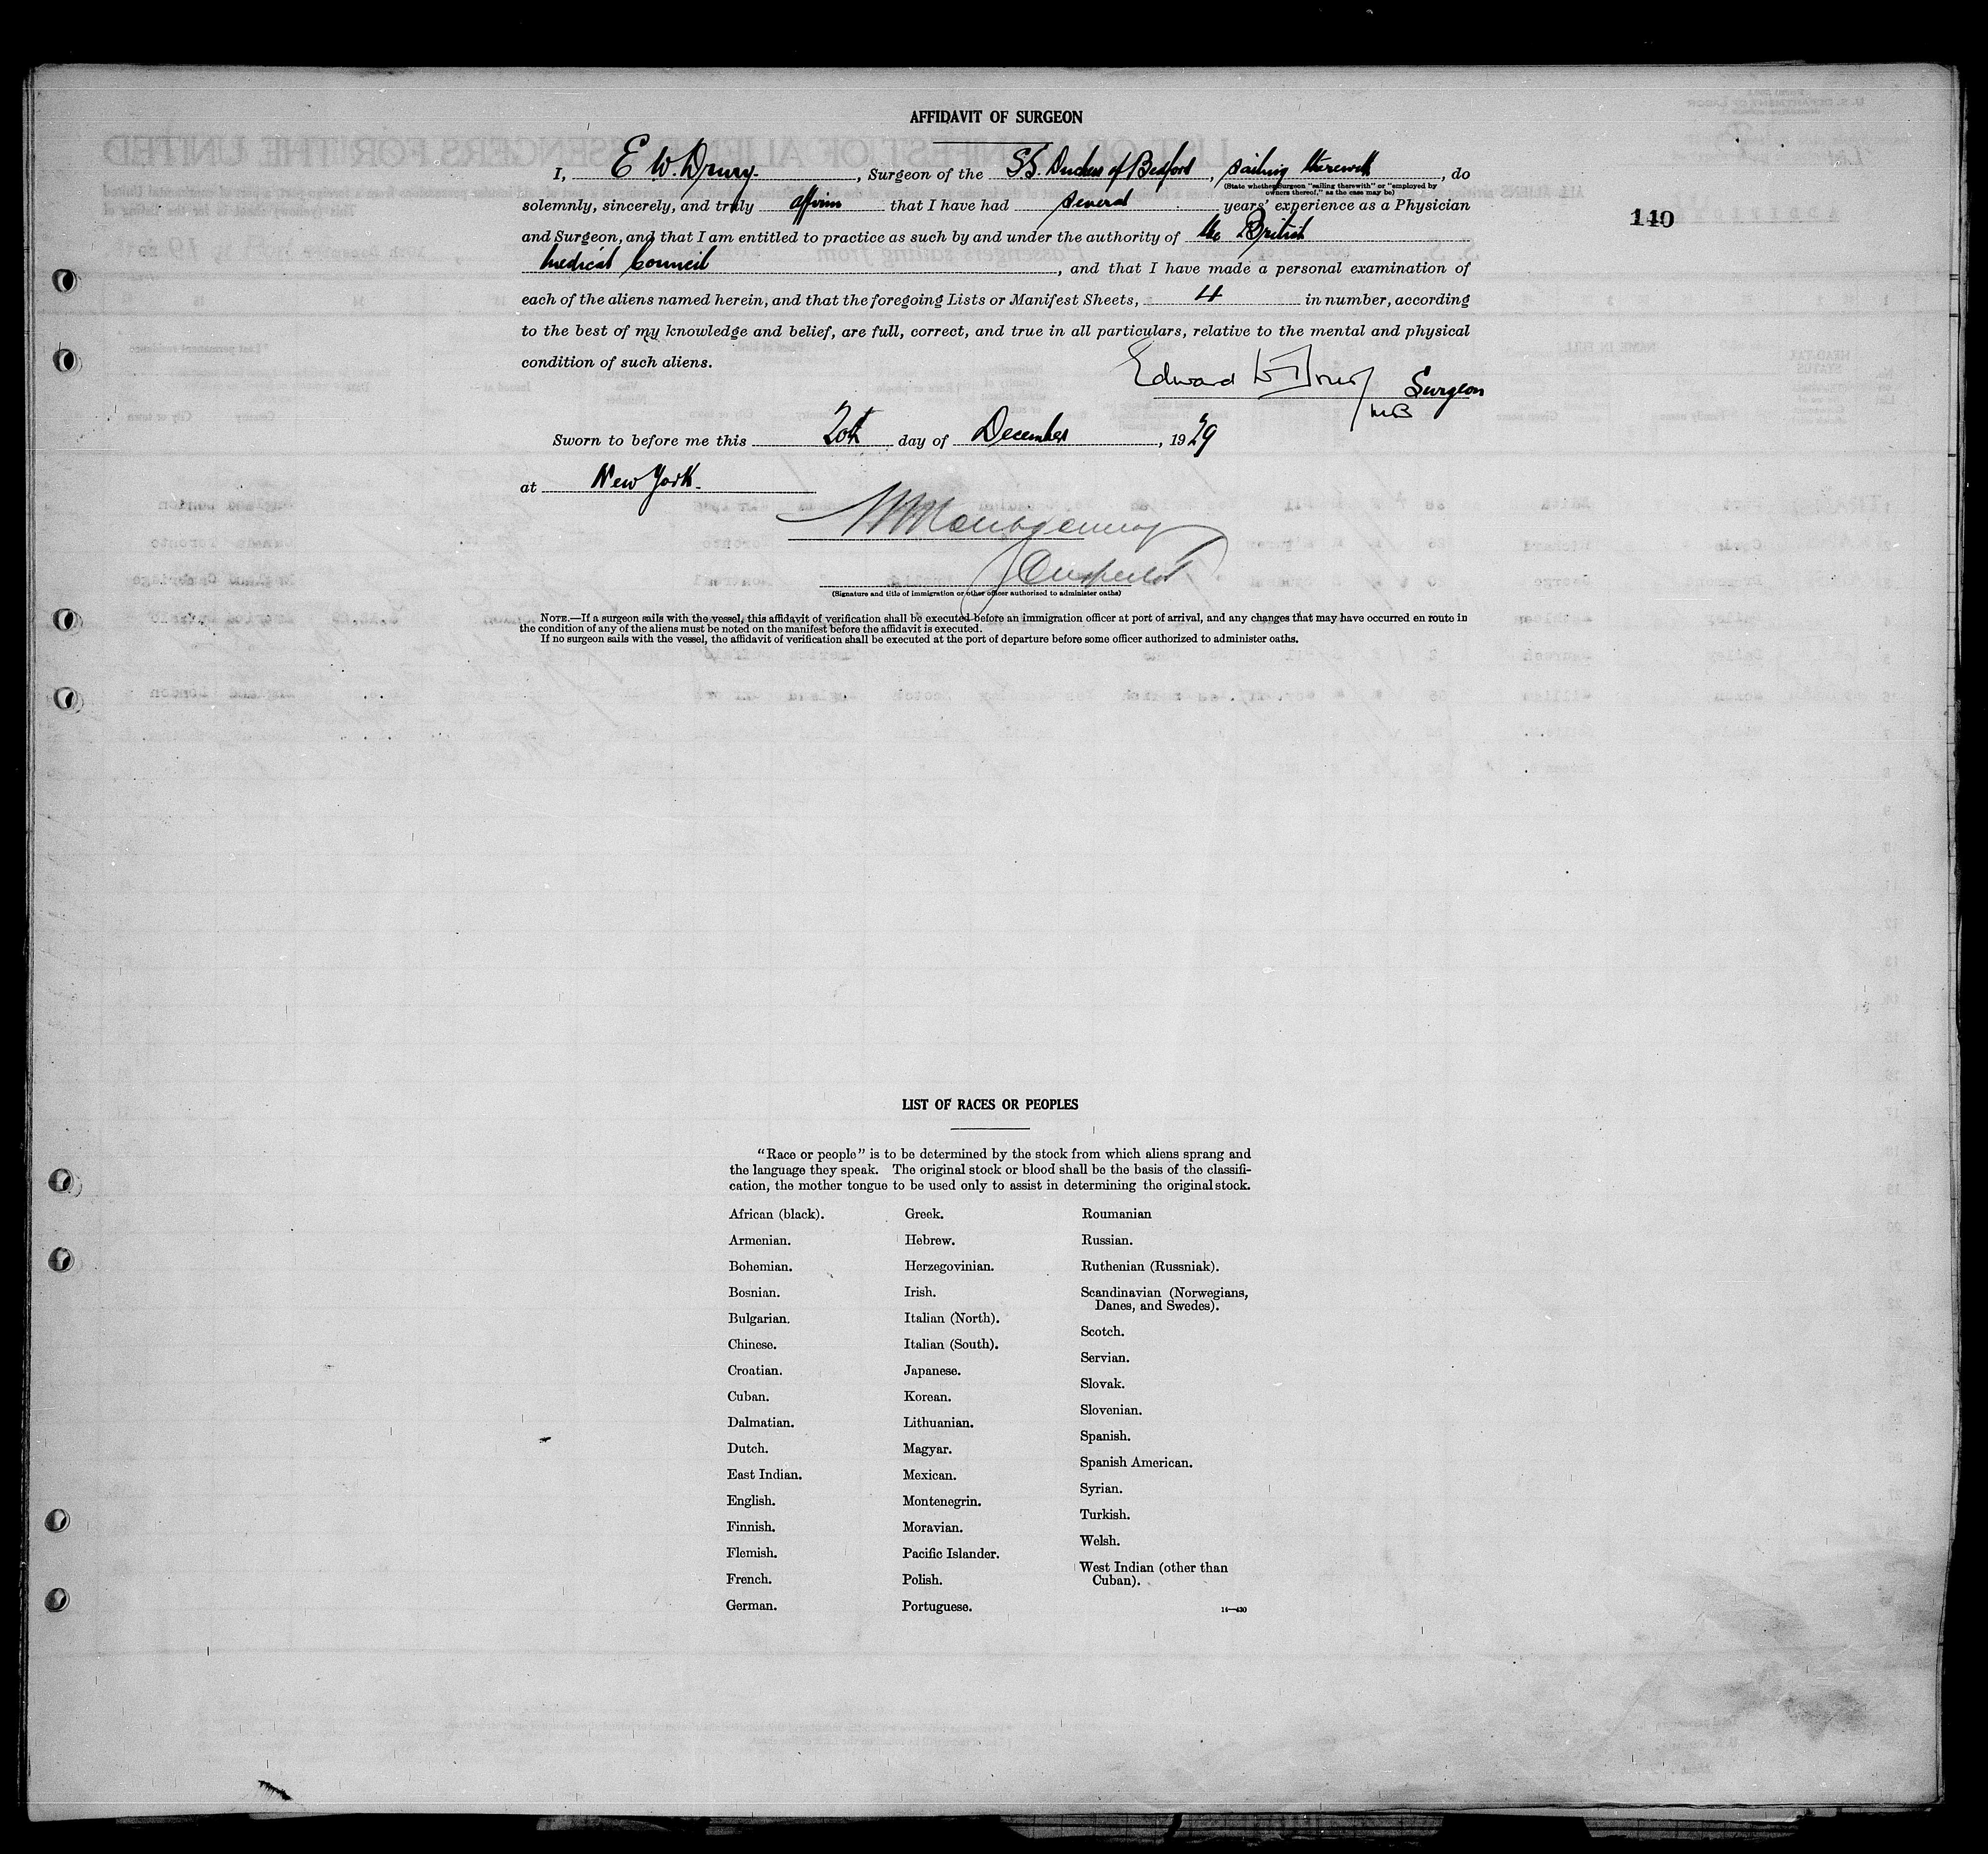 AFFIDAVIT OF SURGEON
I, E W. Drury., Surgeon of the SS. Duchess of Bedford, sailing therewith, do
(State whether Surgeon "sailing therewith" or "employed by
owners thereof," as the case may be)
solemnly, sincerely, and truly affirm that I have had several years' experience as a Physician
140
and Surgeon, and that I am entitled to practice as such by and under the authority of the British
Medical Council, and that I have made a personal examination of
each of the aliens named herein, and that the foregoing Lists or Manifest Sheets, 4 in number, according
to the best of my knowledge and belief, are full, correct, and true in all particulars, relative to the mental and physical
condition of such aliens.
Edward W Drury Surgeon
MB
Sworn to before me this 20th day of December, 1929
at New York.
Montgomery
Inspector
(Signature and title of immigration or other officer authorized to administer oaths)
NOTE.—If a surgeon sails with the vessel, this affidavit of verification shall be executed before an immigration officer at port of arrival, and any changes that may have occurred en route in
the condition of any of the aliens must be noted on the manifest before the affidavit is executed.
If no surgeon sails with the vessel, the affidavit of verification shall be executed at the port of departure before some officer authorized to administer oaths.
LIST OF RACES OR PEOPLES
"Race or people" is to be determined by the stock from which aliens sprang and
the language they speak. The original stock or blood shall be the basis of the classifi-
cation, the mother tongue to be used only to assist in determining the original stock.
African (black).
Armenian.
Bohemian.
Bosnian.
Bulgarian.
Chinese.
Croatian.
Cuban.
Dalmatian.
Dutch.
East Indian.
English.
Finnish.
Flemish.
French.
German.
Greek.
Hebrew.
Herzegovinian.
Irish.
Italian (North).
Italian (South).
Japanese.
Korean.
Lithuanian.
Magyar.
Mexican.
Montenegrin.
Moravian.
Pacific Islander.
Polish.
Portuguese.
Roumanian
Russian.
Ruthenian (Russniak).
Scandinavian (Norwegians,
Danes, and Swedes).
Scotch.
Servian.
Slovak.
Slovenian.
Spanish.
Spanish American.
Syrian.
Turkish.
Welsh.
West Indian (other than
Cuban).
14—430